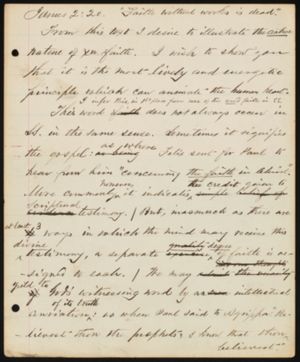 James 2:20. "Faith without works is dead."
From this text I desire to illustrate the active
nature of Xn faith. I wish to show you
that it is the most lively and energetic
principle which can animate the human heart.
I infer this, in 1st place from one of the
This word faith does not always occur in
S. in the same sense. Sometimes it signifies
the gospel: as where Felix sent for Paul to
hear from him "concerning the faith in Christ."
More commonly, however, it indicates, the credit going to
Scriptural testimony. / But, inasmuch as there are
at least, 3
ways in which the mind may receive this
divine
testimony, a separate quality of faith is as-
signed to each. / We may
yield to
God's witnessing word by intellectual
of its truth
conviction; as when Paul said to Agrippa "Be-
lievest thou the prophets; I know that thou
believest"